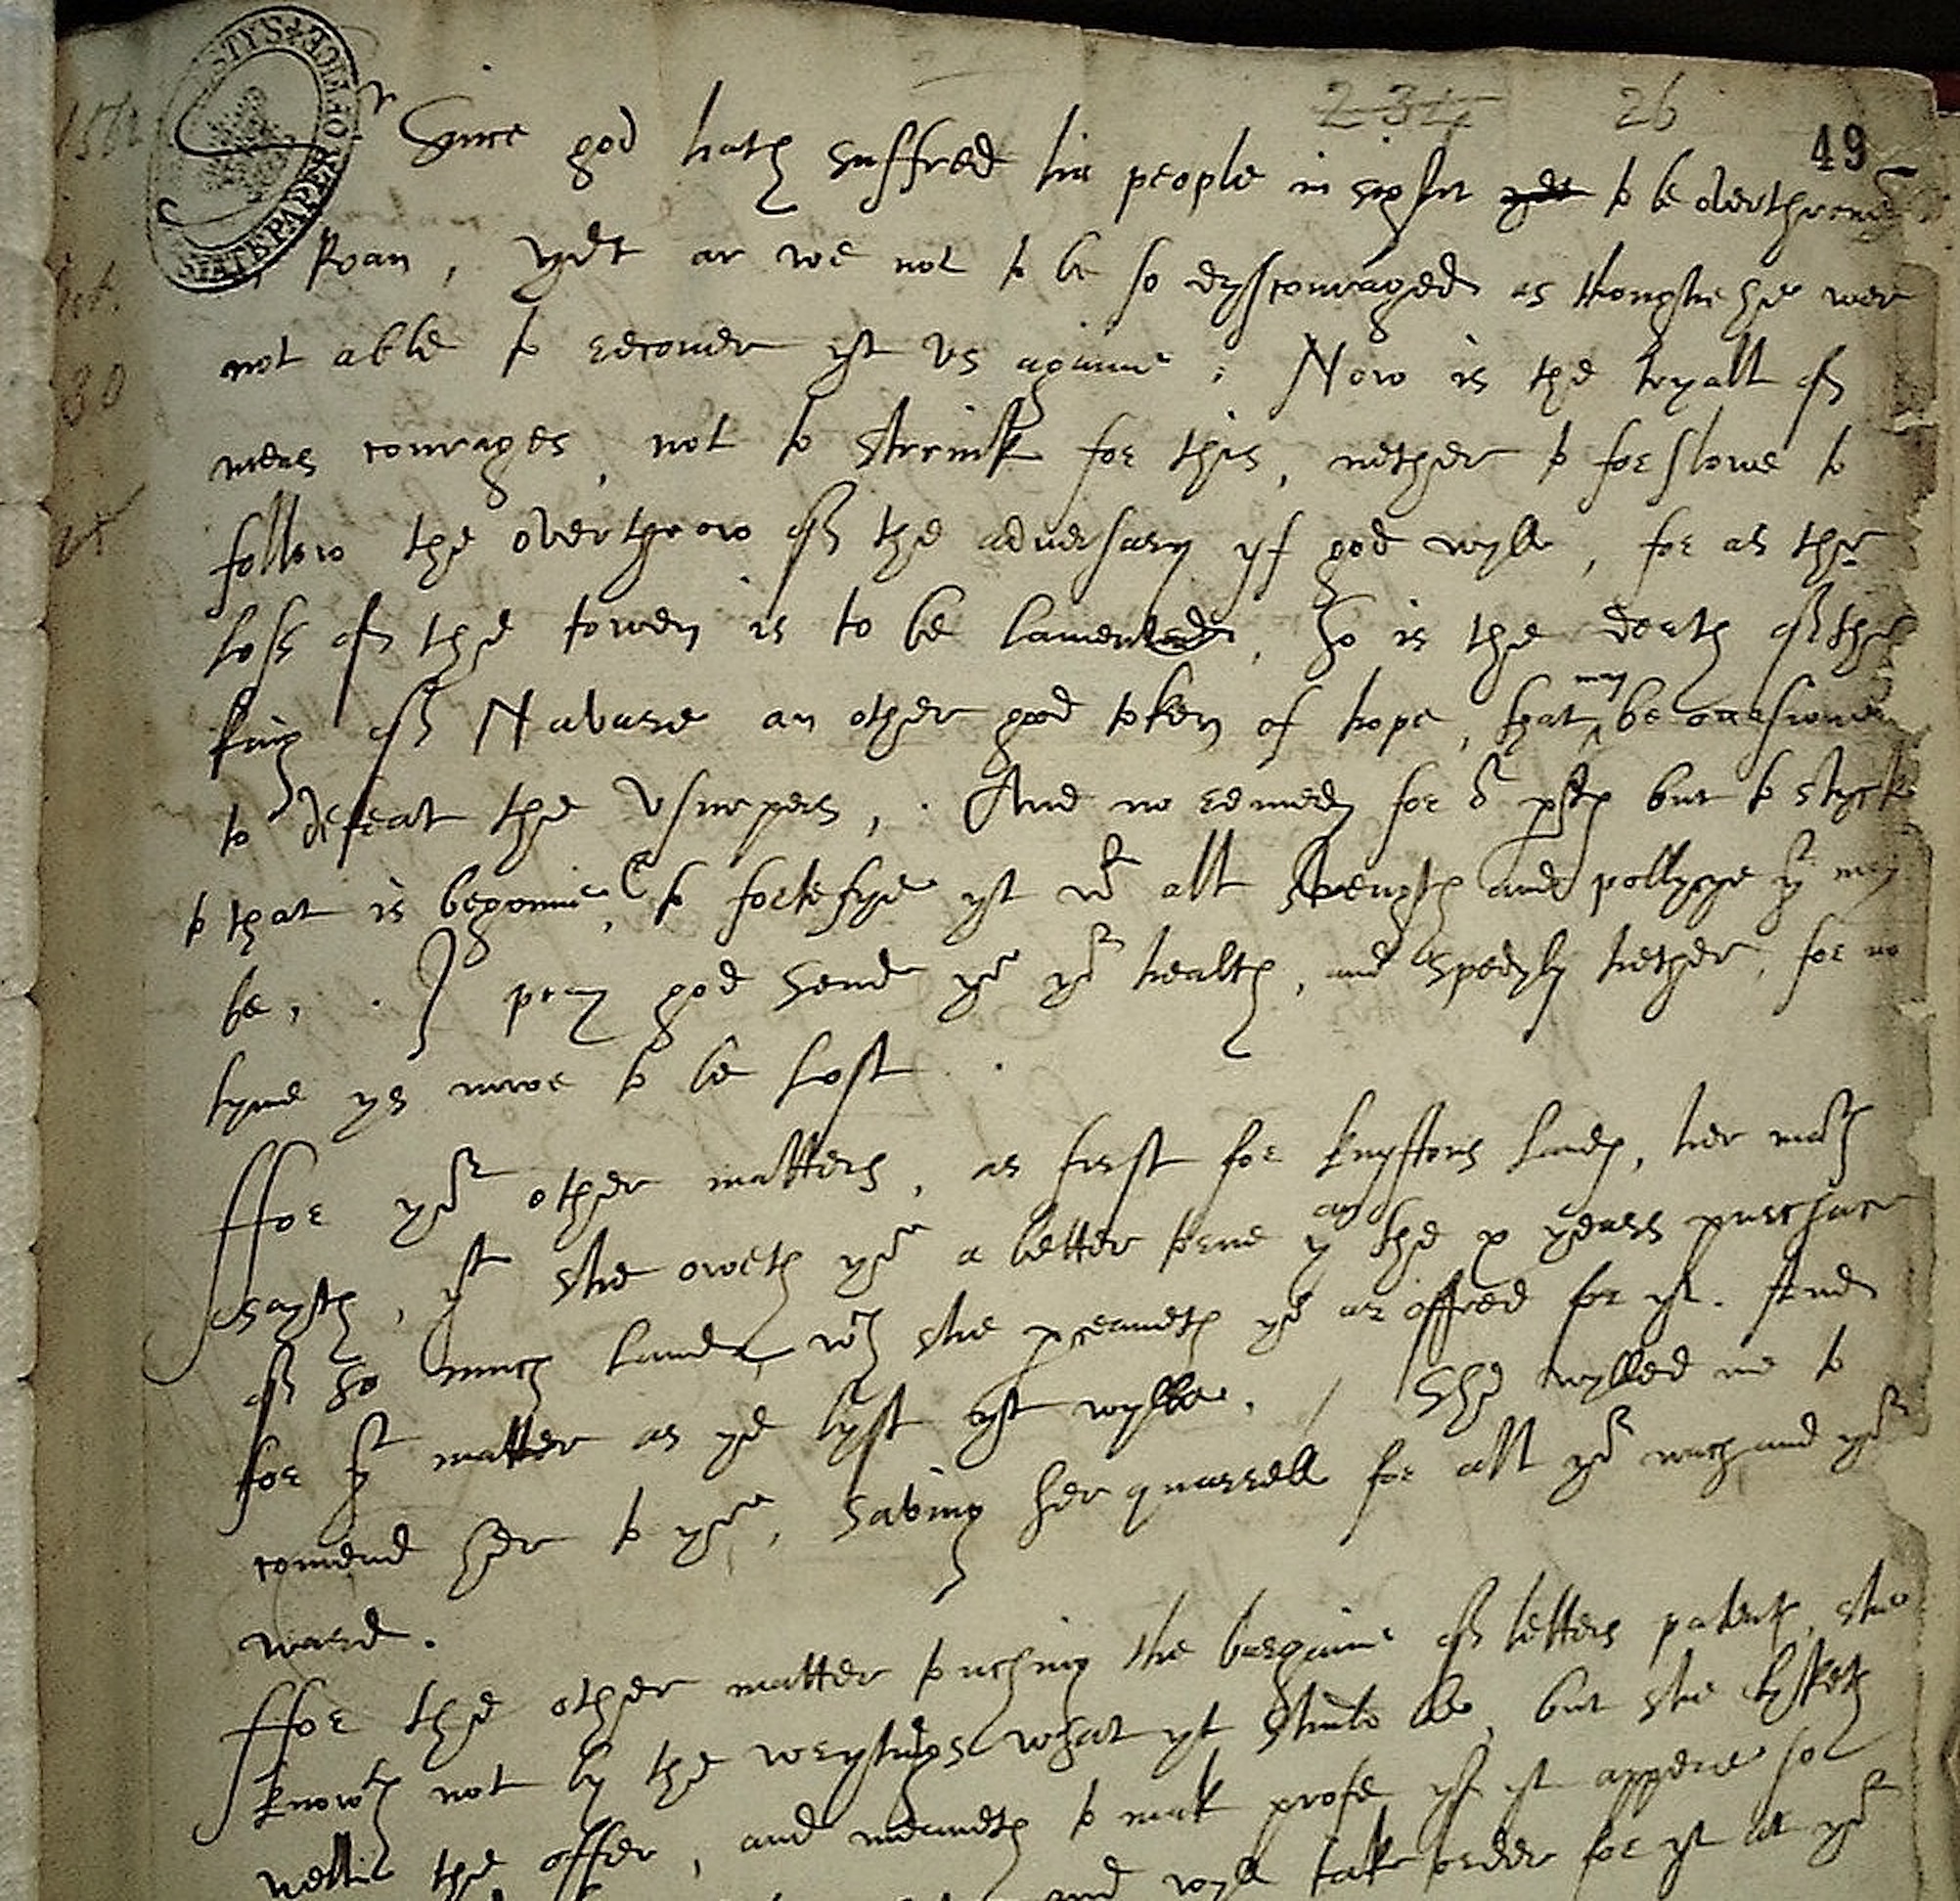 STATE PAPER OFFICE
2 34 26
49
Sr Since god hath suffred his people in sight yet to be overthrowne
Roan, yet ar we not to be so dyscouraged as thoughe he wer
not able to recover yt us againe; Now is the tryall off
mens courages, not to shrink for this, nether to forslowe to
follow the overthrow off the adversary yf god wyll, for as the
loss off the towen is to be lamented, So is the death off the
king off Navare an other good token of hope, that may be
to defeat the Usurpers, And no remedy for or but to styck
to that is begonne, & to fortefye yt wt all strength and pollycye yt may
be, I pray god send yow yor health, and spedyly hether, for no
tyme ys nowe to be lost.
ffor yor other matters, as first for landes, her maty
sayth, yt she oweth yow a better torne then the x years purchace
off so much lande, wch she ye ar offred for yt. And
for yt matter as ye lyst yt wylbe. She wylled me to
comend her to yow, saving her quarrell for all yor and yor
ward.
ffor the other matter touching the bargaine off letters patents, she
knowth not by the wrytings what yt shuld be, but she lyketh
well the offer, and meaneth to mak profe yf yt appere so
and wyll take order for yt at yor